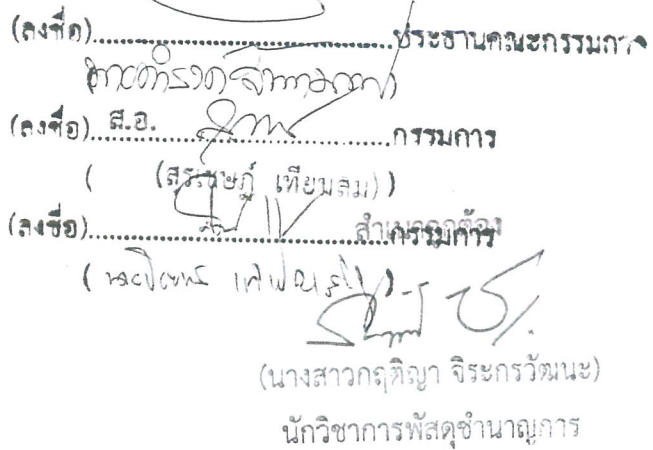 (ลงชื่อ)..............................ประธานคณะกรรมการ
(ลงชื่อ) ส.อ. ..............................กรรมการ
( (สุรเชษฎ์ เทียมสม) )
(ลงชื่อ)..............................กรรมการ
สำเนาถูกต้อง
(นางสาวกฤติญา จิระกรวัฒนะ)
นักวิชาการพัสดุชำนาญการ